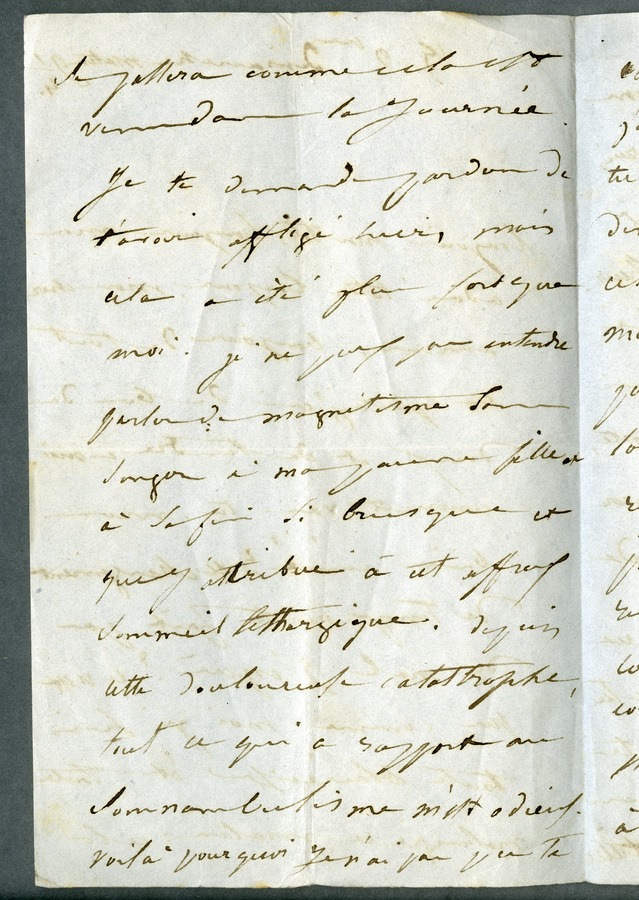 comme cela est
dans la journée.
Je te demande pardon de
t'avoir affligé hier, mais
cela a été plus fort que
moi. je ne puis pas entendre
parler de magnétisme sans
songer à ma pauvre fille et
à sa fin si brusque et
que j'attribue à cet affreux
sommeil léthargique. depuis
cette douloureuse catastrophe,
tout ce qui a rapport au
somnambulisme m'est odieux.
voilà pourquoi je n'ai pas pu te